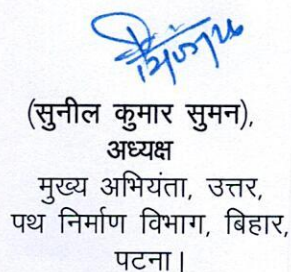 (सुनील कुमार सुमन),
अध्यक्ष
मुख्य अभियंता, उत्तर,
पथ निर्माण विभाग, बिहार,
पटना।